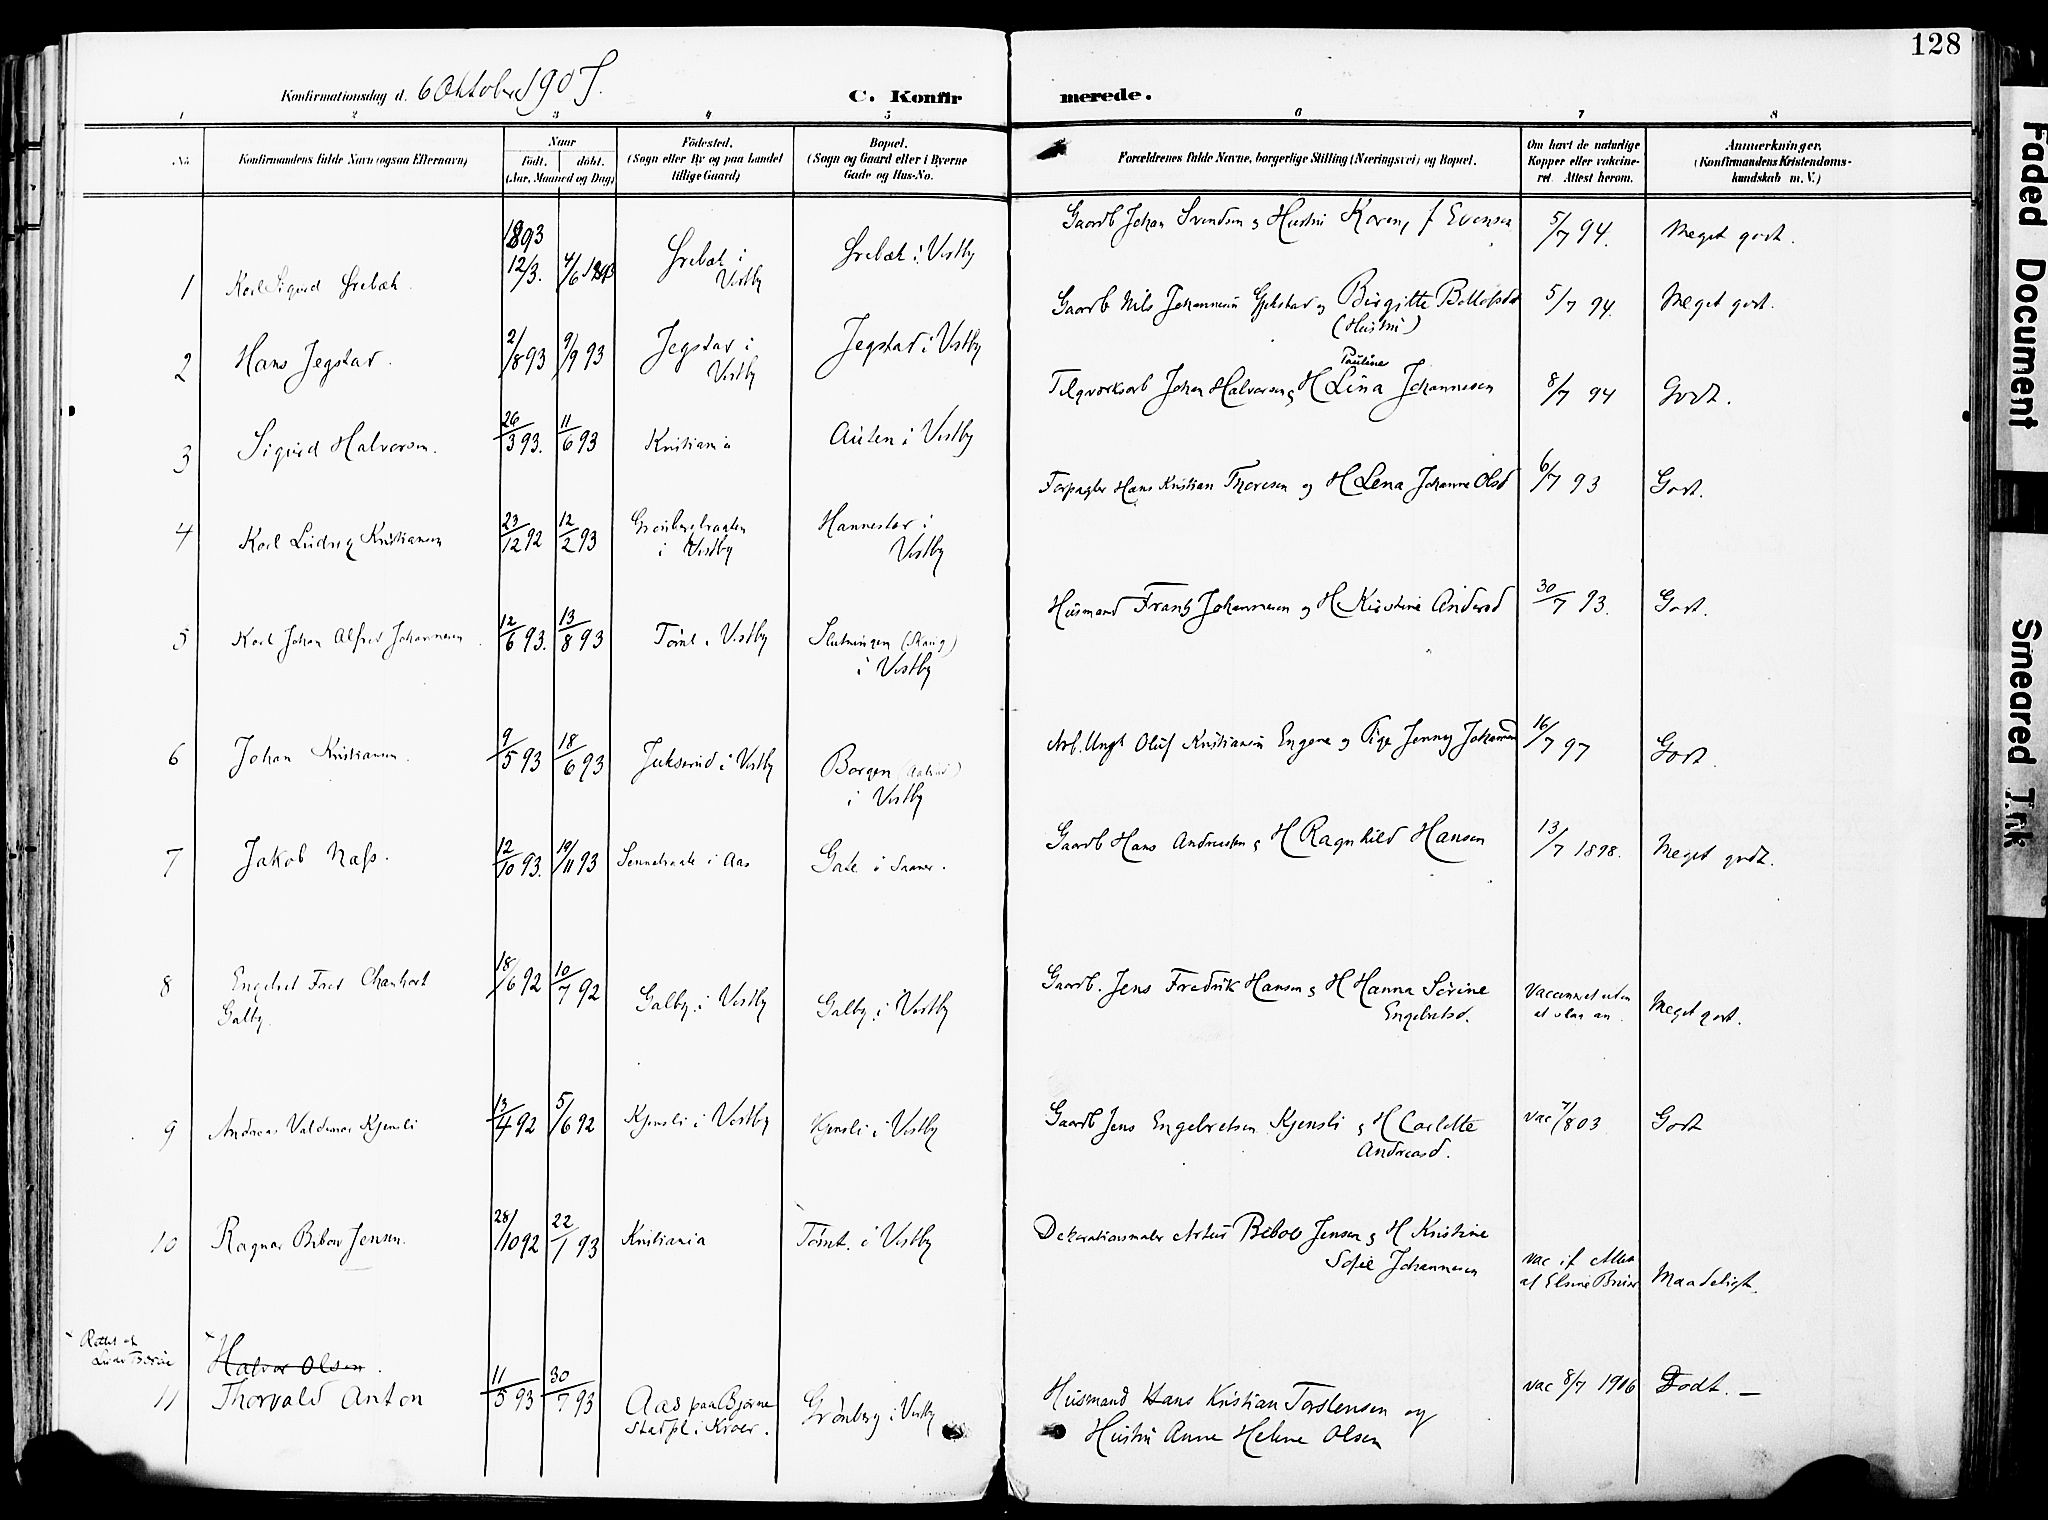 128
Konfirmationsdag d. 6 Oktober 1907.
C. Konfirmerede.
1 2 3 4 5 6 7 8
No. Konfirmandens fulde Navn (ogsaa Efternavn)
Naar
Født. døbt.
(Aar, Maaned og Dag)
Fødested.
(Sogn eller By og paa Landet
tillige Gaard)
Bopæl.
(Sogn og Gaard eller i Byerne
Gade og Hus-No.
Forældrenes fulde Navne, borgerlige Stilling (Næringsvei) og Bopæl.
Om havt de naturlige
Kopper eller vakcine-
ret. Attest herom.
Anmærkninger.
(Konfirmandens Kristendoms-
kundskab m. V.)
1 Karl Sigurd Srebæk. 1893 12/3. 4/6 1893 Srebæk i Vestby Srebæk i Vestby Gaardb Johan Svendsen og Hustru Karen, f Evensen 5/7 94. Meget godt.
2 Hans Jegstad. 2/8 93 9/9 93 Jegstad i Vestby Jegstad i Vestby Gaardb Nils Johannesen Gjekstad og Birgitte (Hustru) 5/7 94. Meget godt.
3 Sigurd Halvorsen. 26/3 93. 11/6 93 Kristiania Auten i Vestby Teglværksarb Johan Halvorsen & H Pauline Lina Johannesen 8/7 94 Godt.
4 Karl Ludvig Kristiansen 23/12 92 12/2 93 i Vestby Hannestad i Vestby Forpagter Hans Kristian Thoresen og H Lena Johanne Olsd 6/7 93 Godt.
5 Karl Johan Alfred Johannesen 12/6 93. 13/8 93 Tømt i Vestby Slutningen (Skaug) i Vestby Husmand Frantz Johannesen og H Kristine Andersd 30/7 93. Godt.
6 Johan Kristiansen. 9/5 93 18/6 93 Jukserud i Vestby Borgen i Vestby Arb. Ungk Oluf Kristiansen Engene og Pige Jenny 16/7 97 Godt.
7 Jakob Næss. 12/10 93. 19/11 93 i Aas Gate i Saaner. Gaardb Hans Andersen & H Ragnhild Hansen 13/7 1898. Meget godt.
8 Engebret Fred Galby. 18/6 92 10/7 92 Galby i Vestby Galby i Vestby Gaardb. Jens Fredrik Hansen & H Hanna Serine Engebretsd. Vaccineret uden at slaa an. Meget godt.
9 Andreas Valdemar Kjensli 13/4 92 5/6 92 Kjensli i Vestby Kjensli i Vestby Gaardb Jens Engebretsen Kjensli & H Carlotte Andreasd. vac 7/8 03 Godt
10 Ragnar Bebow Jensen. 28/10 92 22/1 93 Kristiania Tømt. i Vestby Dekorationsmaler Artur Bebow Jensen & H Kristine Sofie Johannesen vac if Attest af Maadeligt.
Rettet af
Halvor Olsen.
11 Thorvald Anton 11/5 93 30/7 93 Aas paa Bjørne stadpl. i Kroer. Grønberg i Vestby Husmand Hans Kristian Torstensen og Hustru Anne Helene Olsen vac 8/7 1906 Godt. —
Faded Document
Smeared Ink